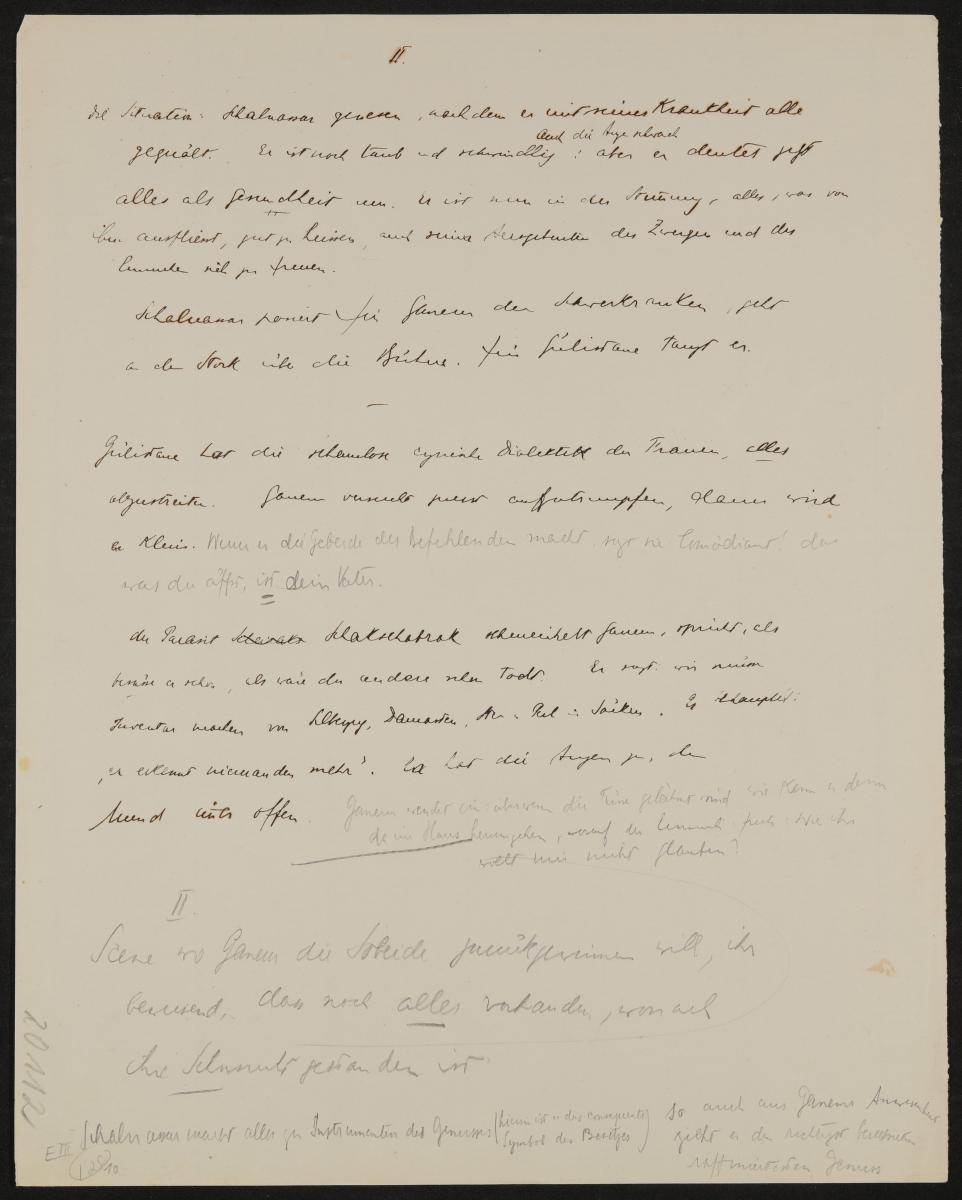 II.
Die Situation: Schalnassar genesen, nachdem er mit seiner Krankheit alle
auch die Augen schwach
gequält. Er ist noch taub und schwindlig: aber er deutet jetzt
alles als Gesundheit um. Er ist nun in der Stimmung, alles, was von
ihm ausfliesst, gut zu heissen, auch seine des Zwerges und des
zu freuen.
Schalnassar posiert für Ganem den Schwerkranken, geht
am Stock über die Bühne. Für Gülistane tanzt er.
—
Gülistane hat die schamlose cynische Dialektik der Frauen, alles
abzustreiten. Ganem versucht zuerst aufzutrumpfen, dann wird
er klein. Wenn er die Geberde des Befehlenden macht, sagt sie Comödiant! den
was du äffst, ist dein Vater.
der Parasit Schalschabrak schmeichelt Ganem, spricht, als
er schon, als wäre der andere schon todt. Er sagt: wir müssen
Inventar machen von Damasten, in Säcken. Er behauptet:
„er erkennt niemanden mehr". Er hat die Augen zu, den
Mund offen. Ganem wendet ein: aber wenn die Füsse gelähmt sind wie kann er denn
da im Haus herumgehen, worauf der frech: wie ihr
wollt mir nicht glauben?
II.
Scene wo Ganem die Sobeide zurückgewinnen will, ihr
beweisend, dass noch alles vorhanden, wonach
ihre Sehnsucht gestanden ist
Schalnassar macht alles zu Instrumenten des Genusses (hierin ist er das consequente
Symbol des Besitzes) so auch aus Ganems Anwesenheit
zieht er den
raffiniertesten Genuss
E III
20112